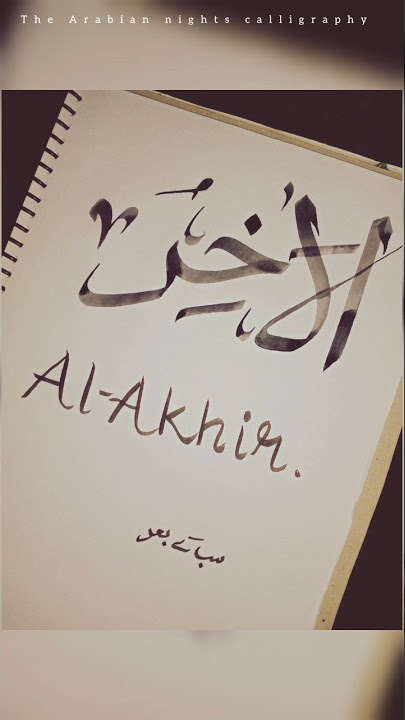 The Arabian nights calligraphy
الاخِرُ
Al-Akhir.
سب کے بعد